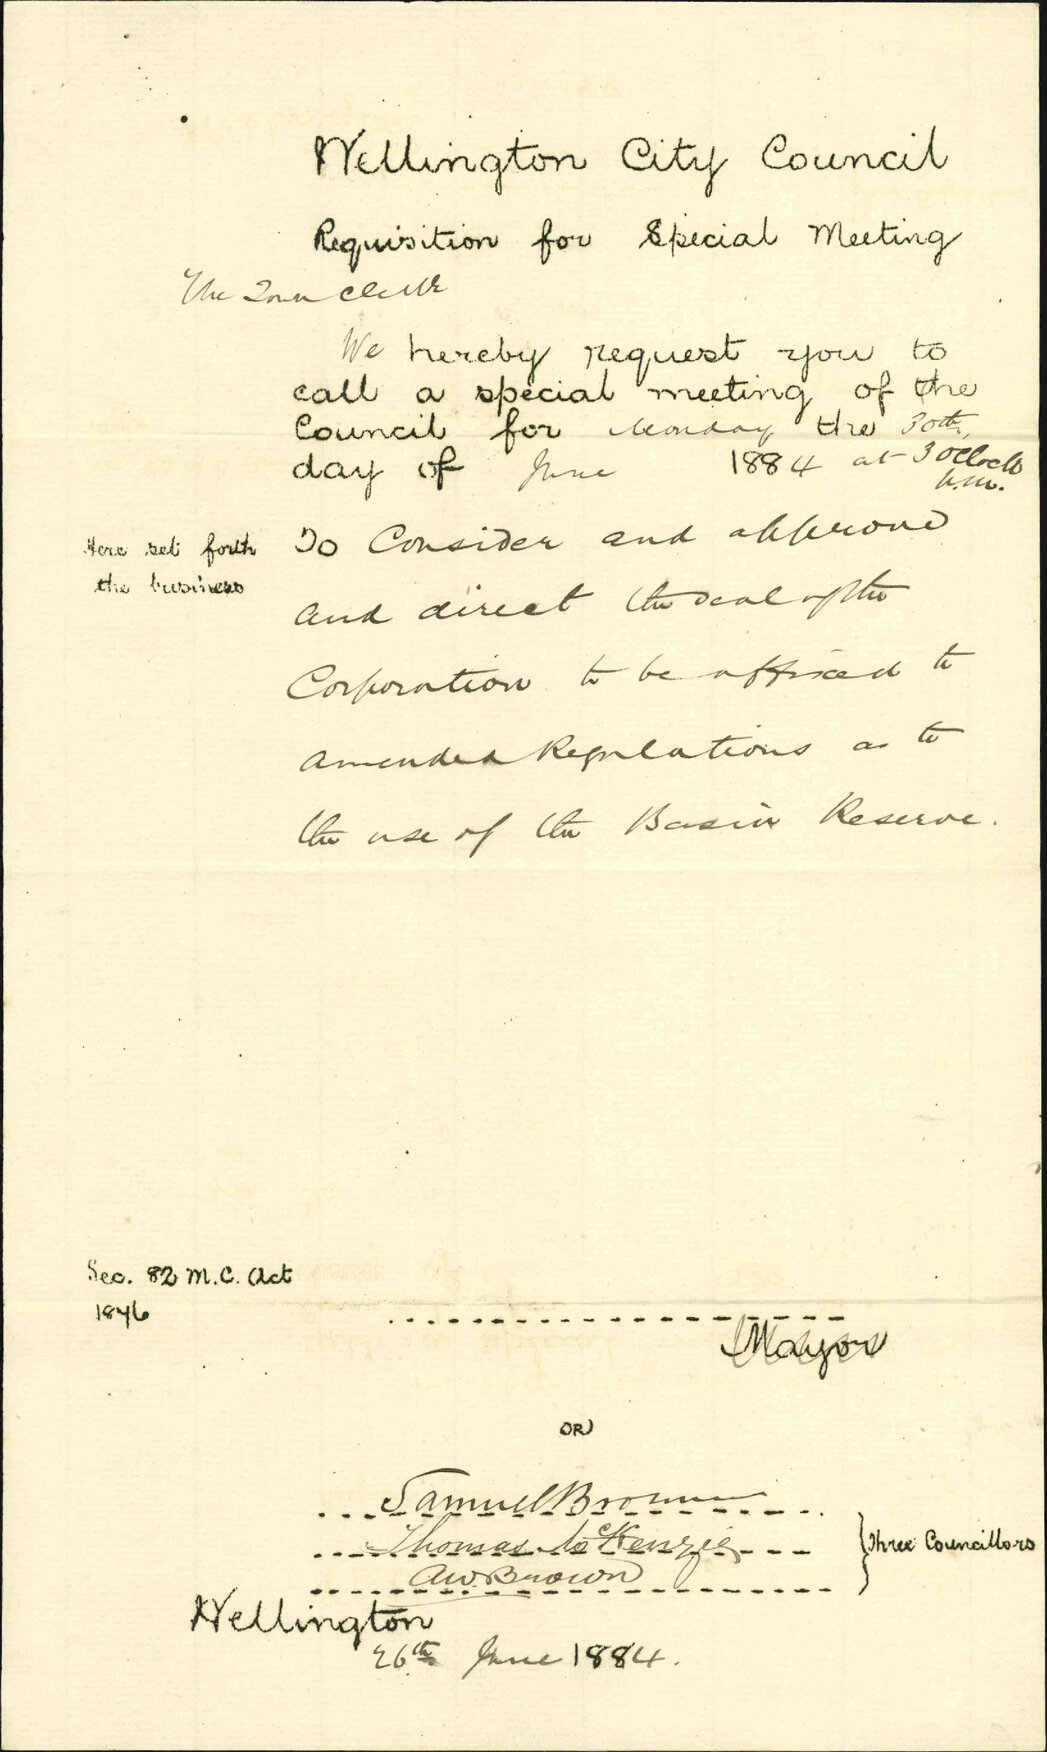 Wellington City Council
Requisition for Special Meeting
The Town Clerk
We hereby request you to
call a special meeting of the
Council for Monday the 30th,
day of June 1884 at 3 oClock
p.m.
Here set forth
the business
To Consider and approve
and direct the seal of the
Corporation to be affixed to
amended Regulations as to
the use of the Basin Reserve.
Sec. 82 M.C. Act
1876
Mayor
OR
Samuel Brown
Thomas McKenzie
AW. Brown
Three Councillors
Wellington
26th June 1884.